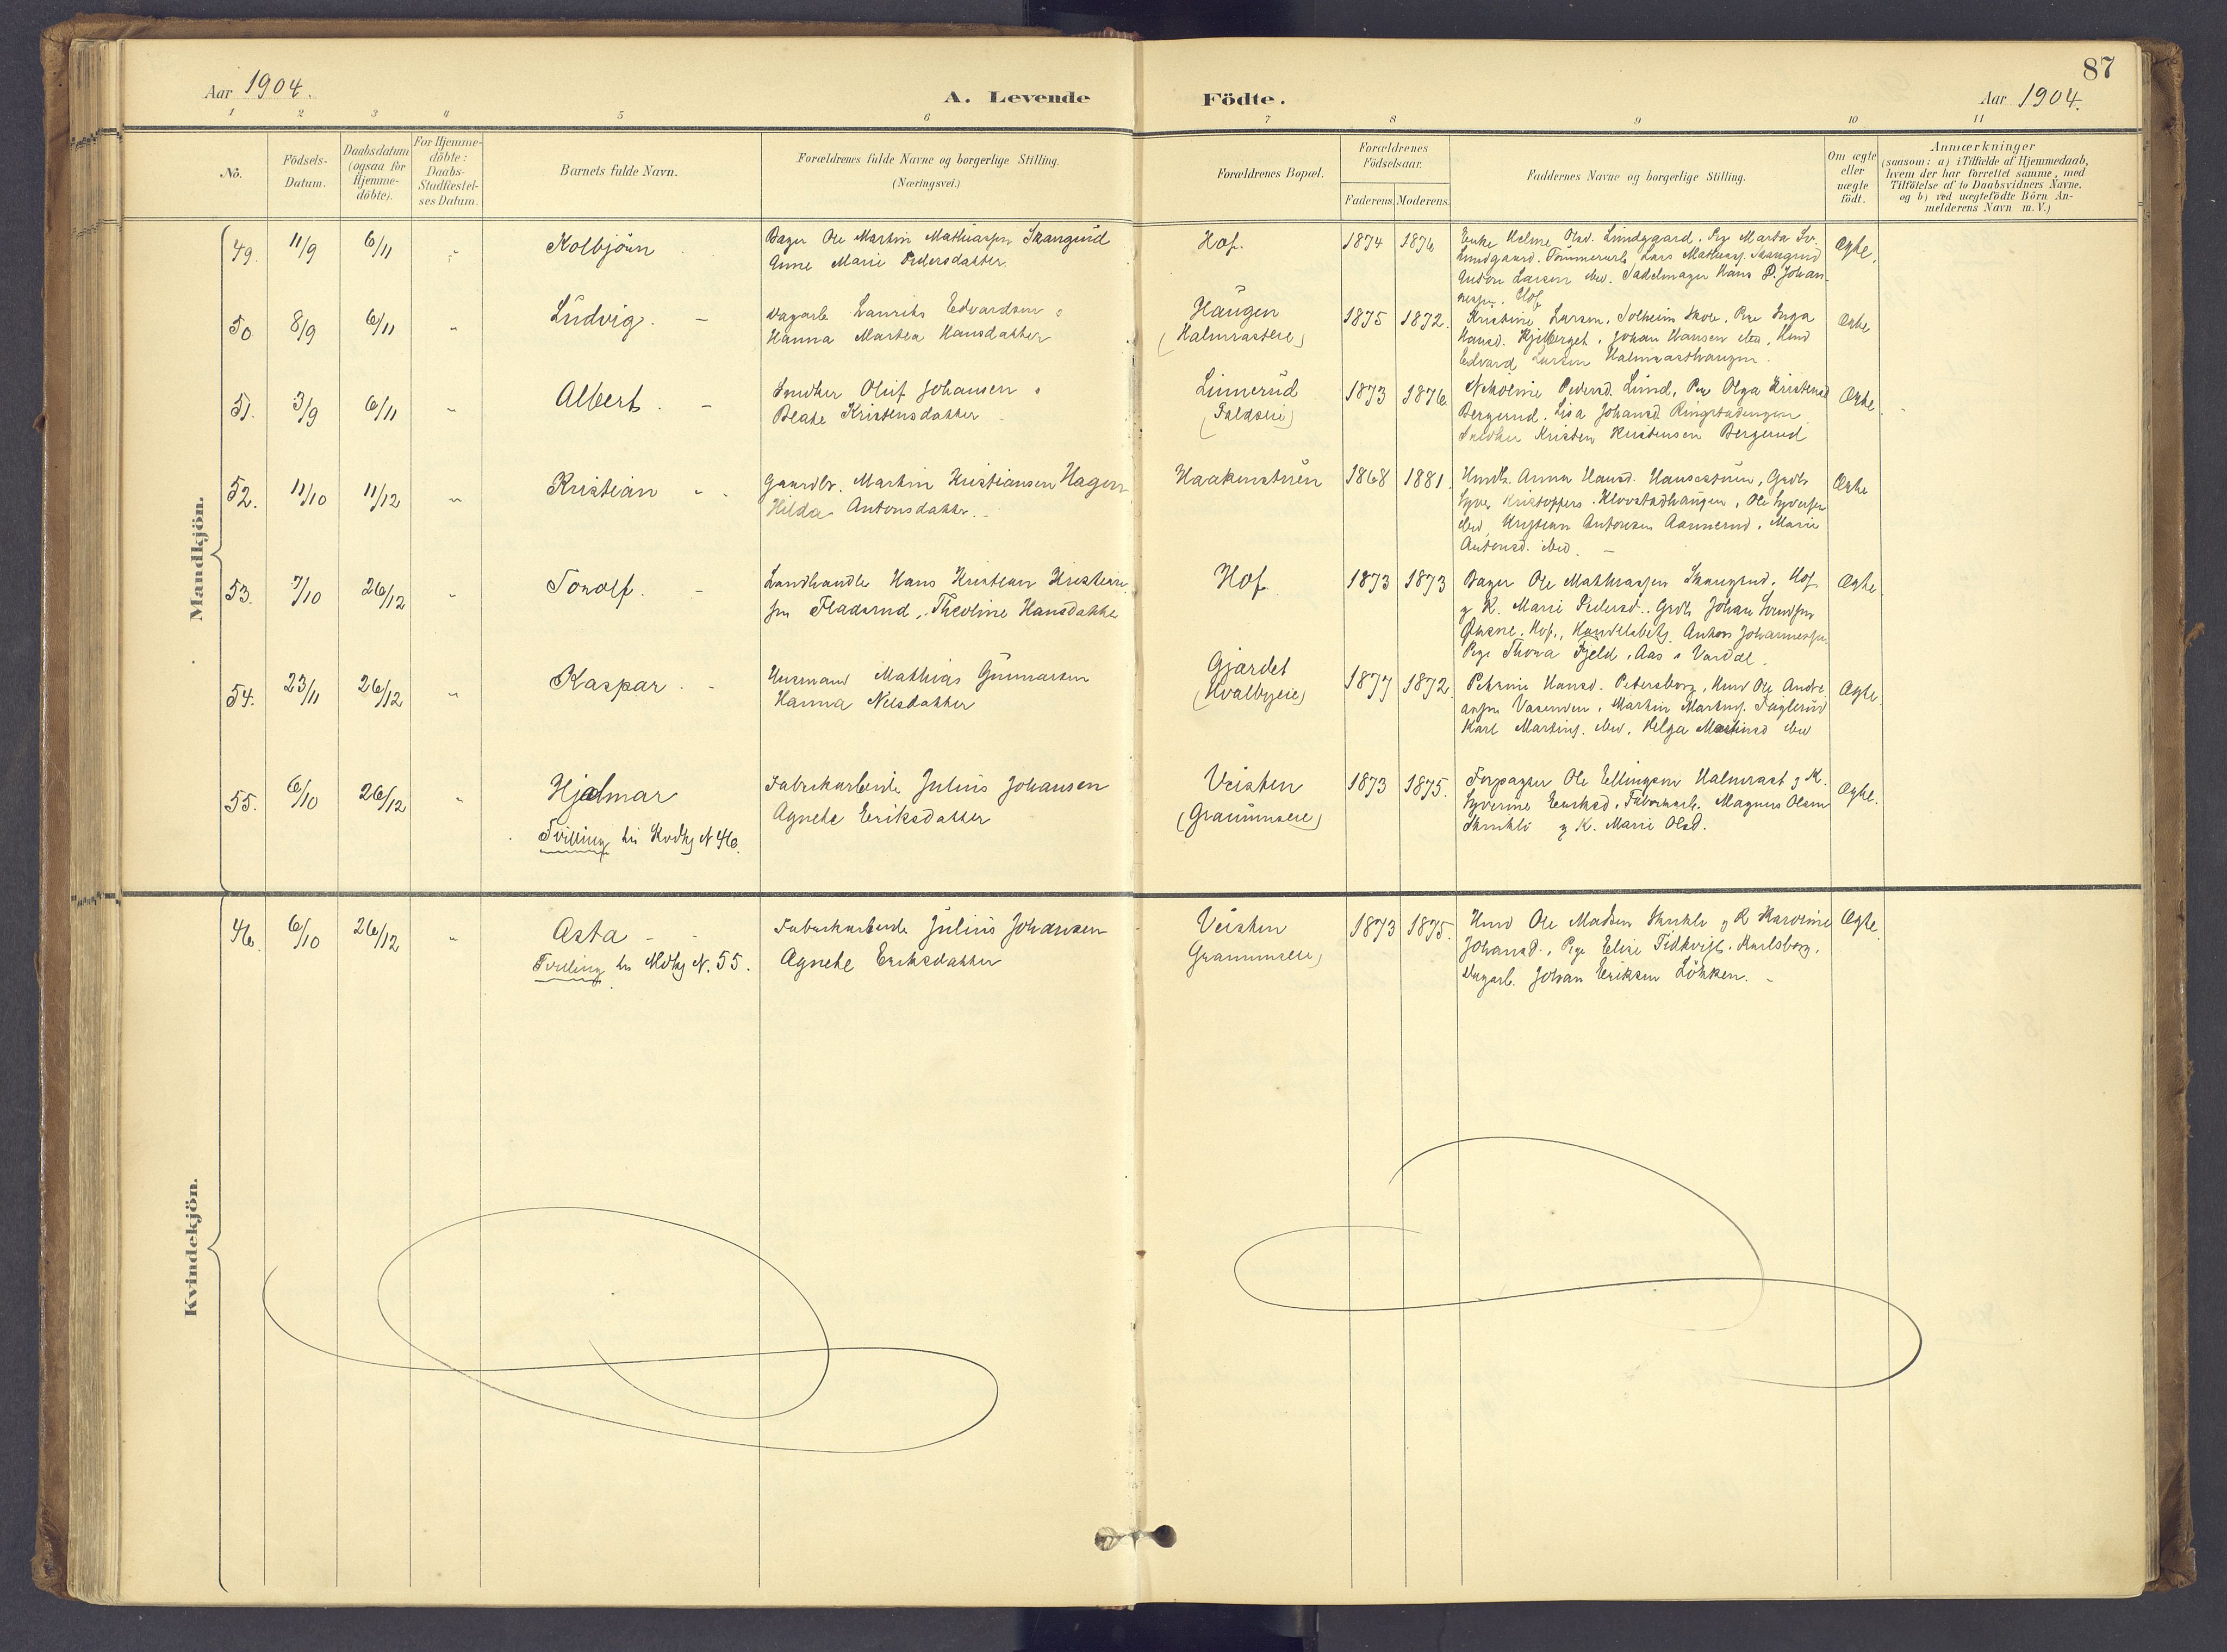 87
Aar 1904.
A. Levende Födte.
Aar 1904.
1 2 3 4 5 6 7 8 9 10 11
No.
Födsels-
Datum.
Daabsdatum
(ogsaa for
Hjemme-
döbte).
For Hjemme-
döbte:
Daabs-
Stadfæstel-
ses Datum.
Barnets fulde Navn.
Forældrenes fulde Navne og borgerlige Stilling.
(Næringsvei.)
Forældrenes Bopæl.
Forældrenes
Födselsaar.
Faderens. Moderens.
Faddernes Navne og borgerlige Stilling.
Om ægte
eller
uægte
födt.
Anmærkninger
(saasom: a) i Tilfælde af Hjemmedaab,
hvem der har forrettet samme, med
Tilföielse af to Daabsvidners Navne.
og b) ved uægtefödte Börn An-
melderens Navn m. V.)
Mandkjön.
49. 11/9 6/11 " Kolbjörn
Bager Ole Martin Mathiassen Skangrud
Anne Marie Pedersdatter
Hof. 1874 1876
Enke Helene Olsd. Lundgaard. Pige Marta
Lundgaard. Tömmerarb. Lars Mathiass. Skangrud
Anton Larsen ibid. Sadelmager Hans P. Johan-
nesen. Hof
Ægte.
50 8/9 6/11 " Ludvig. -
Dagarb Laurits Edvardsen
Hanna Martea Hansdatter
Haugen
(Halmrasteie)
1875 1872.
Kristine Larsen, Solheim Skole, Pige Inga
Hansd. Johan Hansen ibid, Husmd
Edvard Larsen
Ægte
51. 3/9 6/11 " Albert. -
Smedker Oluf Johansen
Beate Kristensdatter
Linnerud
(Faldseie)
1873 1876
Nikoline Pedersd. Lund, Pige Olga Kristensd
Bergerud. Lisa Johansd. Ringstadengen
Kristen Kristensen Bergerud
Ægte
52. 11/10 11/12 " Kristian
Gaardbr. Martin Kristiansen Hagen
Hilda Antonsdatter.
Haakenstuen 1868 1881.
Anna Hansd. Hansestuen, Gaardb
Syver Kristoffers. Klovstadhaugen, Ole Syversen
ibid, Kristian Antonsen Aannerud, Marie
Antonsd. ibid. -
Ægte
53. 7/10 26/12 " Torolf. -
Landhandler Hans Kristian Kristian-
sen Fladsrud, Theoline Hansdatter
Hof 1873 1873
Bager Ole Mathiassen Skangrud, Hof
g K. Marie Pedersd. Grdb Johan Svendsen
Hof, Handelsbetj. Anton Johannessen
Pige Thora Fjeld, Aas i Vardal.
Ægte.
54. 23/11 26/12 " Kaspar. -
Husmand Mathias Gunnarsen
Hanna Nilsdatter
Gjærdet
(Kvalbyeie)
1877 1872
Petrine Hansd. Petersborg, Husmd Ole Andre-
assen Vasenden, Martin Martins. Fuglerud
Karl Martins. ibid, Helga Martinsd ibid
Ægte.
55. 6/10 26/12 " Hjalmar
Tvilling til Kvdkj N 46.
Fabrikarbeide Julius Johansen
Agnete Eriksdatter
Veisten
(Graumseie)
1873 1875.
Forpagter Ole Ellingsen Halmrast g K.
Syverine Eriksd, Fabrikarb. Magnus Olsen
Skrukli g K. Marie Olsd.
Ægte.
Kvindekjön.
46. 6/10 26/12 " Asta - -
Tvilling til Mdkj N. 55.
Fabrikarbeide Julius Johansen
Agnete Eriksdatter
Veisten
Graumseie)
1873 1875.
Husmd Ole Madsen Skrukli g K Karoline
Johansd., Pige Elise Tidkvist. Karlsborg.
Dagarb. Johan Eriksen Lökken. -
Ægte